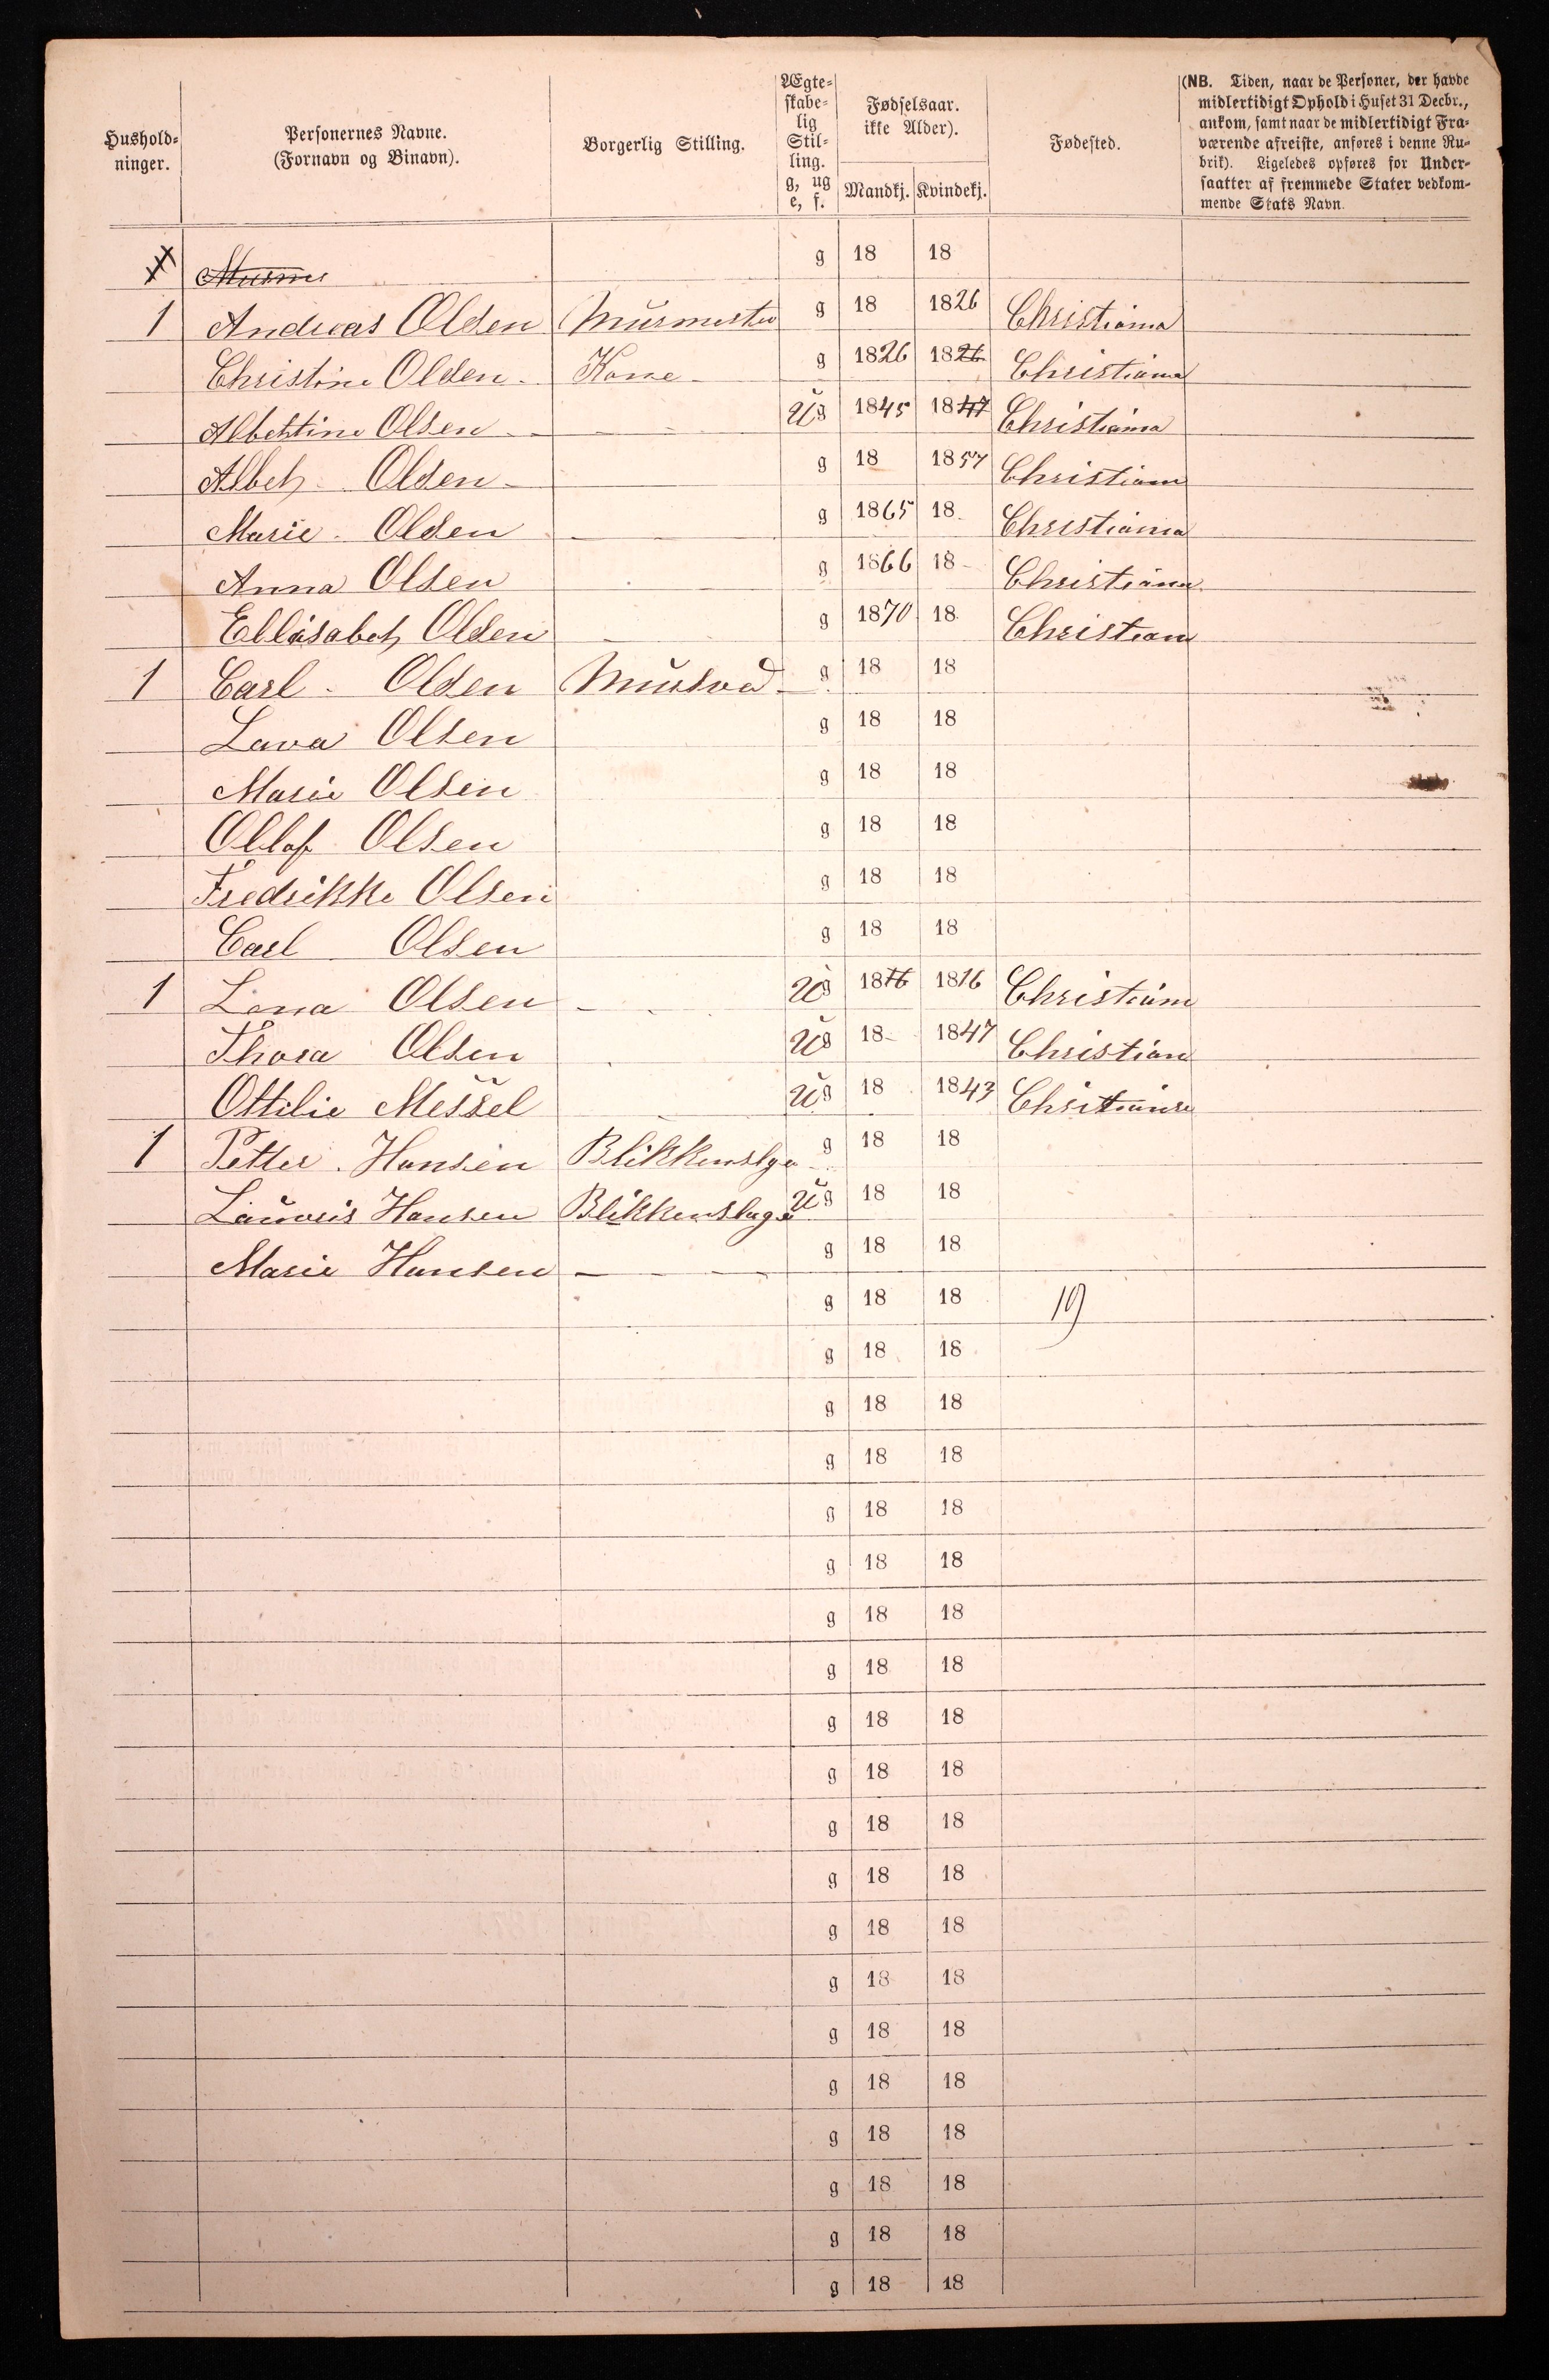 Hushold-
ninger.
Personernes Navne.
(Fornavn og Binavn).
Borgerlig Stilling.
Ægte-
skabe-
lig
Stil-
ling.
g, ug
e, f.
Fødselsaar.
ikke Alder).
Mandkj. Kvindekj.
Fødested.
(NB. Tiden, naar de Personer, der havde
midlertidigt Ophold i Huset 31 Decbr.,
ankom, samt naar de midlertidigt Fra-
værende afreiste, anføres i denne Ru-
brik). Ligeledes opføres for Under-
saatter af fremmede Stater vedkom-
mende Stats Navn.
g 18 18
1 Andreas Olsen Murmester g 18 1826 Christiania
Christine Olsen Kone g 1826 1826 Christiania
Albertine Olsen Ug 1845 1847 Christiania
Albert Olsen g 18 1857 Christiania
Marie Olsen g 1865 18 Christiania
Anna Olsen g 1866 18 Christiania
Ellisabet Olsen g 1870 18 Christian
1 Carl Olsen Mursvend g 18 18
Lava Olsen g 18 18
Marie Olsen g 18 18
Ollaf Olsen g 18 18
Fredrikke Olsen g 18 18
Carl Olsen g 18 18
1 Lena Olsen Ug 1816 1816 Christian
Thora Olsen Ug 18 1847 Christian
Ottilie Messel Ug 18 1843
1 Petter Hansen Blikkenslger g 18 18
Lauris Hansen Blikkenslager Ug 18 18
Marie Hansen g 18 18
g 18 18 19
g 18 18
g 18 18
g 18 18
g 18 18
g 18 18
g 18 18
g 18 18
g 18 18
g 18 18
g 18 18
g 18 18
g 18 18
g 18 18
g 18 18
g 18 18
g 18 18
g 18 18
g 18 18
g 18 18